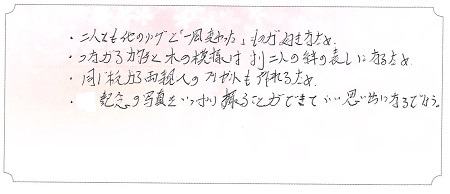 ・二人とも他のリングと「一風変わった」ものが好きなため
・つながる形と木の模様は より二人の絆の表しになるため.
・同じ お両親へのプレゼントも作れるため.
・記念の写真をいっぱい撮ることができて いい思い出になるでしょう。